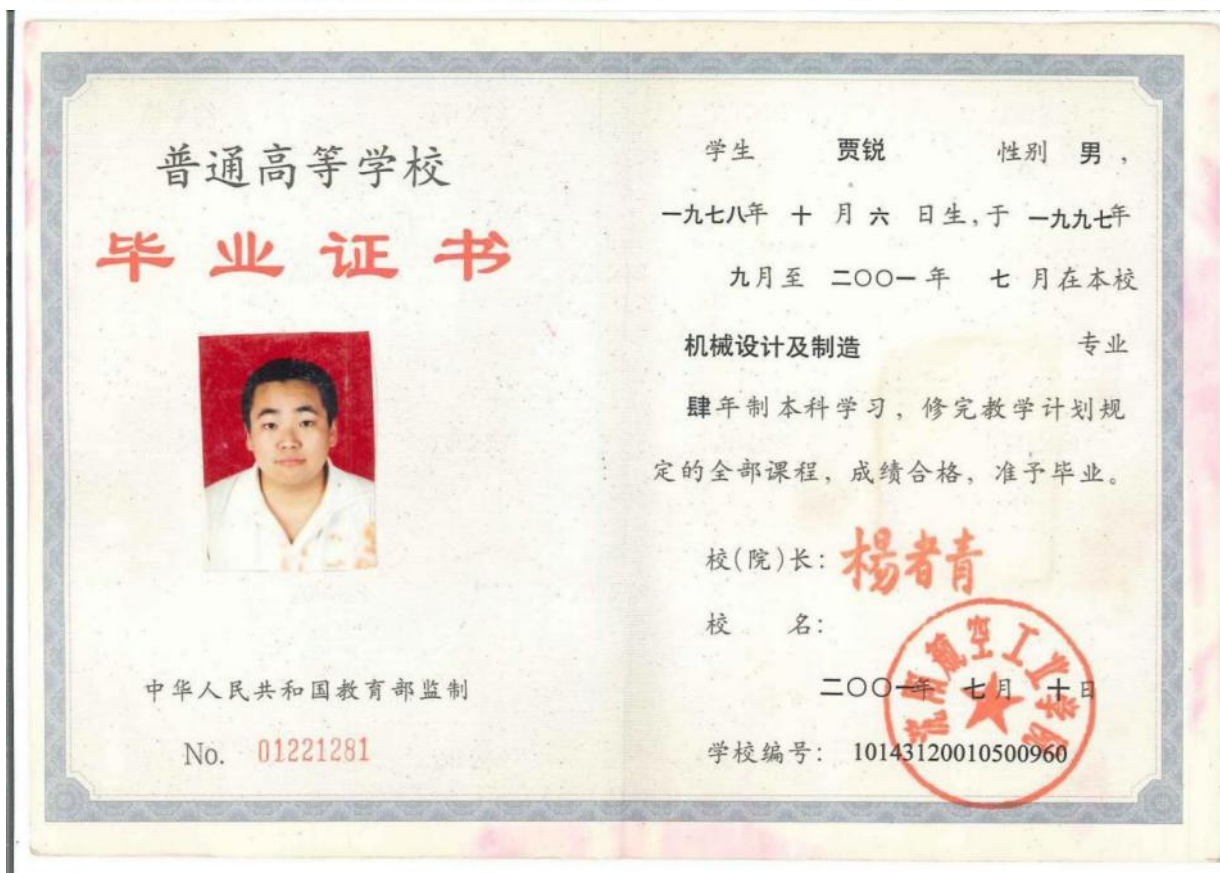 普通高等学校
毕业证书
中华人民共和国教育部监制
No. 01221281
学生 贾锐 性别 男，
一九七八年 十 月 六 日生，于 一九九七年
九月至 二〇〇一 年 七 月在本校
机械设计及制造 专业
肆年制本科学习，修完教学计划规
定的全部课程，成绩合格，准予毕业。
校(院)长： 楊者青
校 名：
沈阳航空工业学院
二〇〇一年 七月 十日
学校编号： 10143120010500960